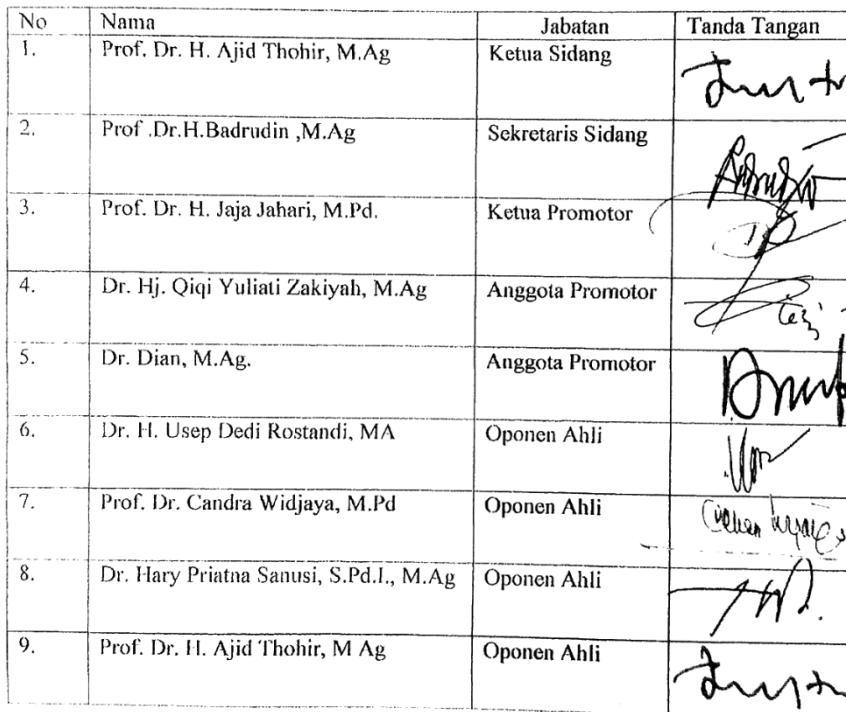 No Nama Jabatan Tanda Tangan
1. Prof. Dr. H. Ajid Thohir, M.Ag Ketua Sidang
2. Prof .Dr.H.Badrudin ,M.Ag Sekretaris Sidang
3. Prof. Dr. H. Jaja Jahari, M.Pd. Ketua Promotor
4. Dr. Hj. Qiqi Yuliati Zakiyah, M.Ag Anggota Promotor
5. Dr. Dian, M.Ag. Anggota Promotor
6. Dr. H. Usep Dedi Rostandi, MA Oponen Ahli
7. Prof. Dr. Candra Widjaya, M.Pd Oponen Ahli
8. Dr. Hary Priatna Sanusi, S.Pd.I., M.Ag Oponen Ahli
9. Prof. Dr. H. Ajid Thohir, M Ag Oponen Ahli